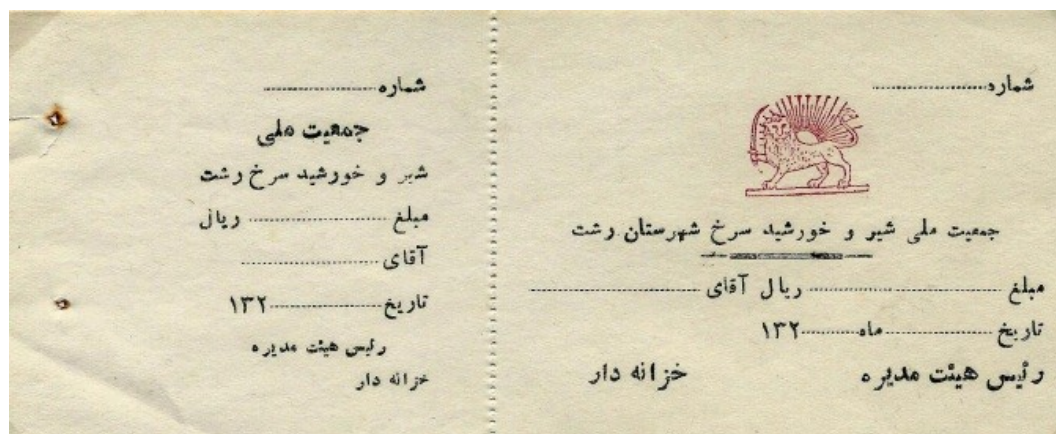 شماره....................
جمعیت ملی شیر و خورشید سرخ شهرستان رشت
مبلغ.................... ریال آقای....................
تاریخ....................ماه............۱۳۲
رئیس هیئت مدیره خزانه دار
شماره....................
جمعیت ملی
شیر و خورشید سرخ رشت
مبلغ.................... ریال
آقای....................
تاریخ....................۱۳۲
رئیس هیئت مدیره
خزانه دار